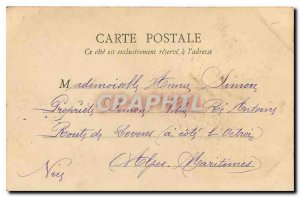 CARTE POSTALE
Ce côté est exclusivement réservé à l'adresse
Mademoiselle Anna Simon
Propriété Simon St Antoine
Route de Levens (à côté l'Octroi
Nice Alpes-Maritimes
CARTAPHILIA